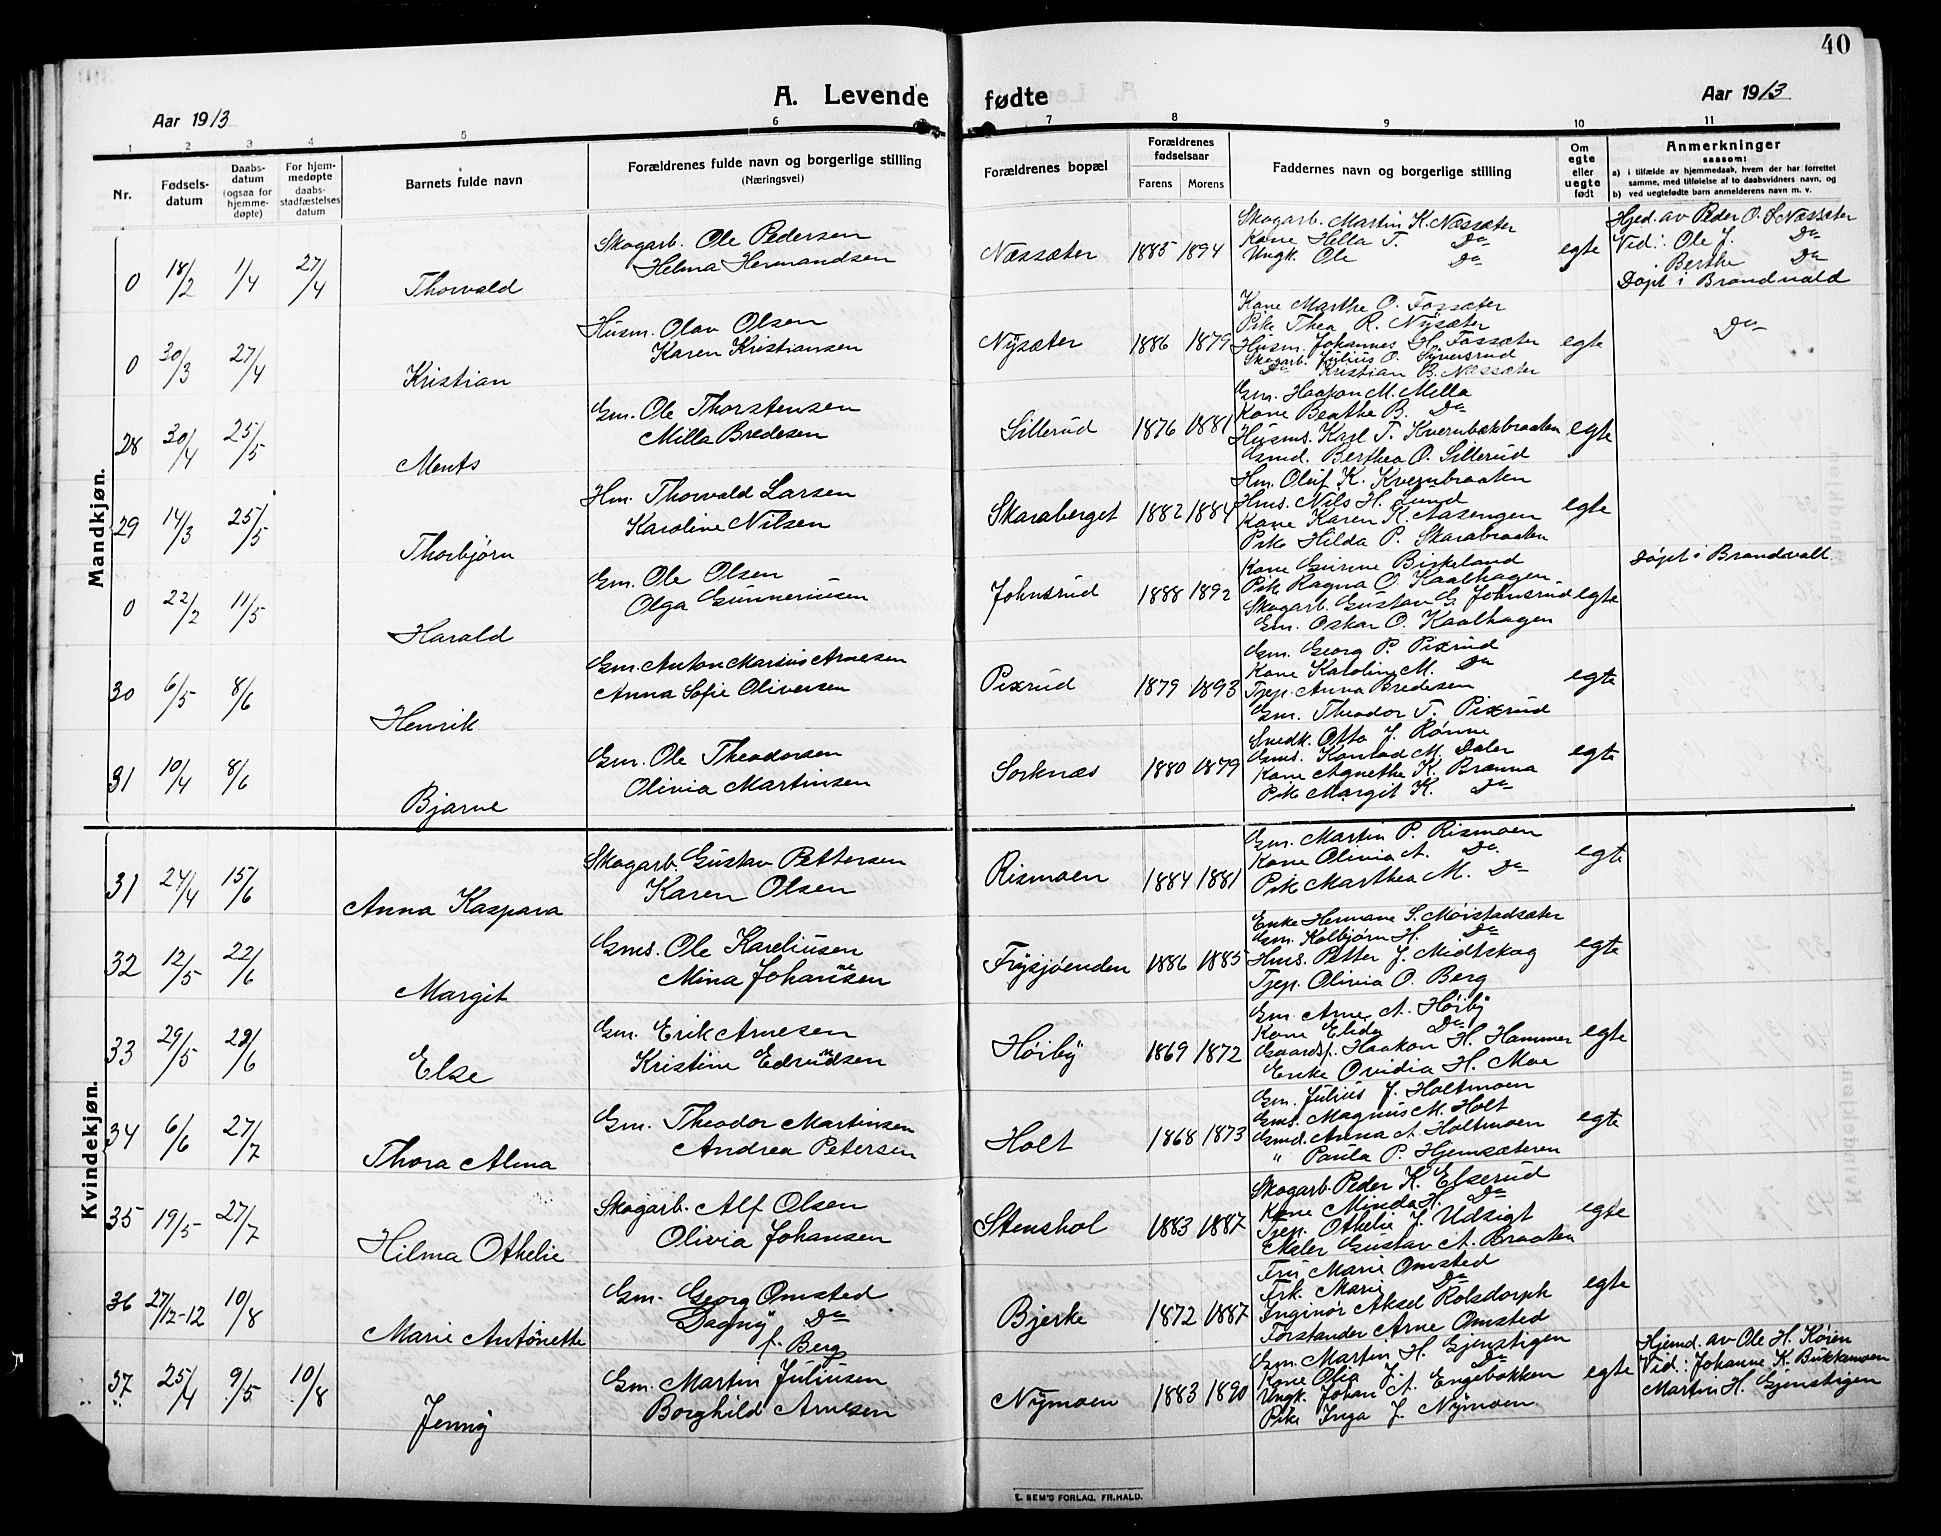 40
A. Levende fødte
Aar 1913
Aar 1913
1 2 3 4 5 6 7 8 9 10 11
Nr.
Fødsels-
datum
Daabs-
datum
(ogsaa for
hjemme-
døpte)
For hjem-
medøpte
daabs-
stadfæstelses
datum
Barnets fulde navn
Forældrenes fulde navn og borgerlige stilling
(Næringsvei)
Forældrenes bopæl
Forældrenes
fødselsaar
Farens Morens
Faddernes navn og borgerlige stilling
Om
egte
eller
uegte
født
Anmerkninger
saasom:
a) i tilfælde av hjemmedaab, hvem der har forrettet
samme, med tilføielse af to daabsvidners navn, og
b) ved uegtefødte barn anmelderens navn m. v.
Mandkjøn.
0 18/2 1/4 27/4 Thorvald
Skogarb. Ole Pedersen
Helma Hermandsen
Næssæter 1885 1894
Skogarb. Martin K. Næssæter
Kone Hella T. Do
Ungk. Ole Do
egte
Hjed. av Peder O. S. Næssæter
Vid: Ole J. Do
Berthe Do
Døpt i Brandvald
0 30/3 27/4 Kristian
Husm. Olav Olsen
Karen Kristiansen
Nysæter 1886 1879
Kone Marthe O. Fossæter
Pike Thea R. Nysæter
Husm. Johannes H. Fossæter
Skogarb. Julius O. Syversrud
Do Kristian B. Næssæter
egte
Do
28 30/4 25/5 Ments
Gm. Ole Thorstensen
Milla Bredesen
Sillerud 1876 1881
Gm. Haakon M. Mella
Kone Beathe B. Do
Husms. Karl T. Kvernbækbraaten
Gmd. Berthea O. Sillerud
egte
29 14/3 25/5 Thorbjørn
Hm. Thorvald Larsen
Karoline Nilsen
Skaraberget 1882 1884
Hm. Oluf K. Kvernbraaten
Hms. Nils H. Lund
Kone Karen K. Aasengen
Pike Hilda P. Skarabraaten
egte
0 22/2 11/5 Harald
Gm. Ole Olsen
Olga Gunneriusen
Johnsrud 1888 1892
Kone Gurine Birkeland
Pik Ragna O. Kaalhagen
Skogarb. Gustav G. Johnsrud
Gm. Oskar O. Kaalhagen
egte
Døpt i Brandvall
30 6/5 8/6 Henrik
Gm. Anton Marius Arnesen
Anna Sofie Oliversen
Pixrud 1879 1893
Gm. Georg P. Pixrud
Kone Karoline M. Do
Tjep. Anna Bredesen
Gm. Theodor T. Pixrud
egte
31 10/4 8/6 Bjarne
Gm. Ole Theodorsen
Olivia Martinsen
Sorknæs 1880 1879
Snedk. Otto J. Rønne
Gms. Konrad M. Daler
Kone Agnethe K. Brænna
Pik Margit K. Do
egte
Kvindekjøn.
31 24/4 15/6 Anna Kaspara
Skogarb. Gustav Pettersen
Karen Olsen
Rismoen 1884 1881
Gm. Martin P. Rismoen
Kone Olivia A. Do
Pik Marthea M. Do
egte
32 12/5 22/6 Margit
Gms. Ole Kareliusen
Mina Johannesen
Frysjøenden 1886 1885
Enke Hermane S. Moistadsæter
Gm. Kolbjørn H. Do
Hms. Petter J. Midtskog
Tjep. Olivia O. Berg
egte
33 29/5 22/6 Else
Gm. Erik Arnesen
Kristine Edvindsen
Høiby 1869 1872
Gm Arne A. Høiby
Kone Elida Do
Gaardsf. Haakon H. Hammer
Enke Ovidia H. Moe
egte
34 6/6 27/7 Thora Alma
Gm. Theodor Martinsen
Andrea Petersen
Holt 1868 1873
Gm. Julius J. Holtmoen
Gms. Magnus M. Holt
Gmd. Anna A. Holtmoen
" Paula P. Hjemsæteren
egte
35 19/5 27/7 Hilma Othelie
Skogarb. Alf Olsen
Olivia Johansen
Stenshol 1883 1887
Skogarb. Peder K. Elserud
Kone Minda H. Do
Tjep. Othelie J. Udsigt
Maler Gustav A. Braaten
egte
36 27/12-12 10/8 Marie Antonette
Gm. Georg Omsted
Dagny Do
f. Berg
Bjerke 1872 1887
Fru Marie Omsted
Frk. Marie Do
Inginør Aksel Rolsdorph
Forstander Arne Omsted
egte
37 25/4 9/5 10/8 Jenny
Gm. Martin Juliusen
Borghild Arnesen
Nymoen 1883 1890
Gm. Martin H. Gjenstigen
Kone Olia J. Do
Ungk. Johan A. Engebakken
Pike Inga J. Nymoen
egte
Hjemd. av Ole H. Køien
Vid: Johanne K. Bukkemoen
Martin H. Gjenstigen
E. SEM'S FORLAG, FR.HALD.